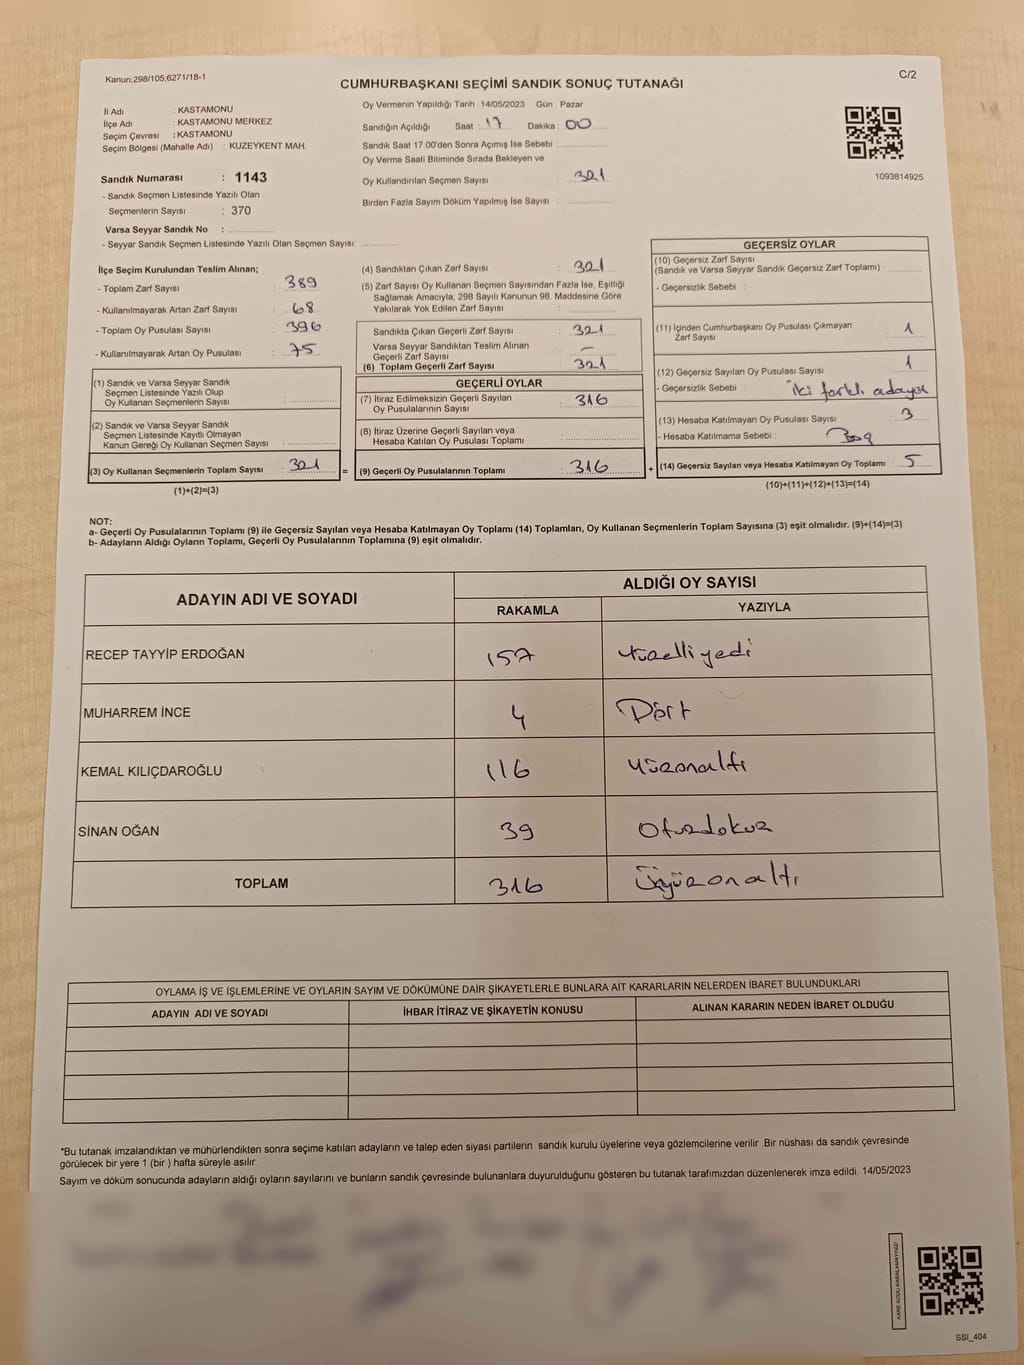 Kanun;298/105;6271/18-1
C/2
CUMHURBAŞKANI SEÇİMİ SANDIK SONUÇ TUTANAĞI
İl Adı : KASTAMONU
İlçe Adı : KASTAMONU MERKEZ
Seçim Çevresi : KASTAMONU
Seçim Bölgesi (Mahalle Adı) : KUZEYKENT MAH.
Sandık Numarası : 1143
- Sandık Seçmen Listesinde Yazılı Olan
Seçmenlerin Sayısı : 370
Varsa Seyyar Sandık No :
- Seyyar Sandık Seçmen Listesinde Yazılı Olan Seçmen Sayısı:
Oy Vermenin Yapıldığı Tarih : 14/05/2023 Gün : Pazar
Sandığın Açıldığı Saat : 17 Dakika : 00
Sandık Saat 17:00'den Sonra Açımış İse Sebebi :
Oy Verme Saati Bitiminde Sırada Bekleyen ve
Oy Kullandırılan Seçmen Sayısı : 321
Birden Fazla Sayım Döküm Yapılmış İse Sayısı :
1093814925
İlçe Seçim Kurulundan Teslim Alınan;
- Toplam Zarf Sayısı : 389
- Kullanılmayarak Artan Zarf Sayısı : 68
- Toplam Oy Pusulası Sayısı : 396
- Kullanılmayarak Artan Oy Pusulası : 75
(1) Sandık ve Varsa Seyyar Sandık
Seçmen Listesinde Yazılı Olup
Oy Kullanan Seçmenlerin Sayısı :
(2) Sandık ve Varsa Seyyar Sandık
Seçmen Listesinde Kayıtlı Olmayan
Kanun Gereği Oy Kullanan Seçmen Sayısı :
(3) Oy Kullanan Seçmenlerin Toplam Sayısı : 321 =
(1)+(2)=(3)
(4) Sandıktan Çıkan Zarf Sayısı : 321
(5) Zarf Sayısı Oy Kullanan Seçmen Sayısından Fazla İse, Eşitliği
Sağlamak Amacıyla; 298 Sayılı Kanunun 98. Maddesine Göre
Yakılarak Yok Edilen Zarf Sayısı :
Sandıkta Çıkan Geçerli Zarf Sayısı : 321
Varsa Seyyar Sandıktan Teslim Alınan
Geçerli Zarf Sayısı : -
(6) Toplam Geçerli Zarf Sayısı : 321
GEÇERLİ OYLAR
(7) İtiraz Edilmeksizin Geçerli Sayılan
Oy Pusulalarının Sayısı : 316
(8) İtiraz Üzerine Geçerli Sayılan veya
Hesaba Katılan Oy Pusulası Toplamı :
(9) Geçerli Oy Pusulalarının Toplamı : 316 +
GEÇERSİZ OYLAR
(10) Geçersiz Zarf Sayısı
(Sandık ve Varsa Seyyar Sandık Geçersiz Zarf Toplamı) :
- Geçersizlik Sebebi :
(11) İçinden Cumhurbaşkanı Oy Pusulası Çıkmayan
Zarf Sayısı : 1
(12) Geçersiz Sayılan Oy Pusulası Sayısı : 1
- Geçersizlik Sebebi : İki farklı adaya
(13) Hesaba Katılmayan Oy Pusulası Sayısı : 3
- Hesaba Katılmama Sebebi : Boş
(14) Geçersiz Sayılan veya Hesaba Katılmayan Oy Toplamı : 5
(10)+(11)+(12)+(13)=(14)
NOT:
a- Geçerli Oy Pusulalarının Toplamı (9) ile Geçersiz Sayılan veya Hesaba Katılmayan Oy Toplamı (14) Toplamları, Oy Kullanan Seçmenlerin Toplam Sayısına (3) eşit olmalıdır. (9)+(14)=(3)
b- Adayların Aldığı Oyların Toplamı, Geçerli Oy Pusulalarının Toplamına (9) eşit olmalıdır.
ADAYIN ADI VE SOYADI
ALDIĞI OY SAYISI
RAKAMLA YAZIYLA
RECEP TAYYİP ERDOĞAN 157 Yüzelliyedi
MUHARREM İNCE 4 Dört
KEMAL KILIÇDAROĞLU 116 Yüzonaltı
SİNAN OĞAN 39 Otuzdokuz
TOPLAM 316 Üçyüzonaltı
OYLAMA İŞ VE İŞLEMLERİNE VE OYLARIN SAYIM VE DÖKÜMÜNE DAİR ŞİKAYETLERLE BUNLARA AİT KARARLARIN NELERDEN İBARET BULUNDUKLARI
ADAYIN ADI VE SOYADI İHBAR İTİRAZ VE ŞİKAYETİN KONUSU ALINAN KARARIN NEDEN İBARET OLDUĞU
*Bu tutanak imzalandıktan ve mühürlendikten sonra seçime katılan adayların ve talep eden siyasi partilerin sandık kurulu üyelerine veya gözlemcilerine verilir .Bir nüshası da sandık çevresinde
görülecek bir yere 1 (bir ) hafta süreyle asılır.
Sayım ve döküm sonucunda adayların aldığı oyların sayılarını ve bunların sandık çevresinde bulunanlara duyurulduğunu gösteren bu tutanak tarafımızdan düzenlenerek imza edildi. 14/05/2023
KARE KODU KARALAMAYINIZ!
SSI_404